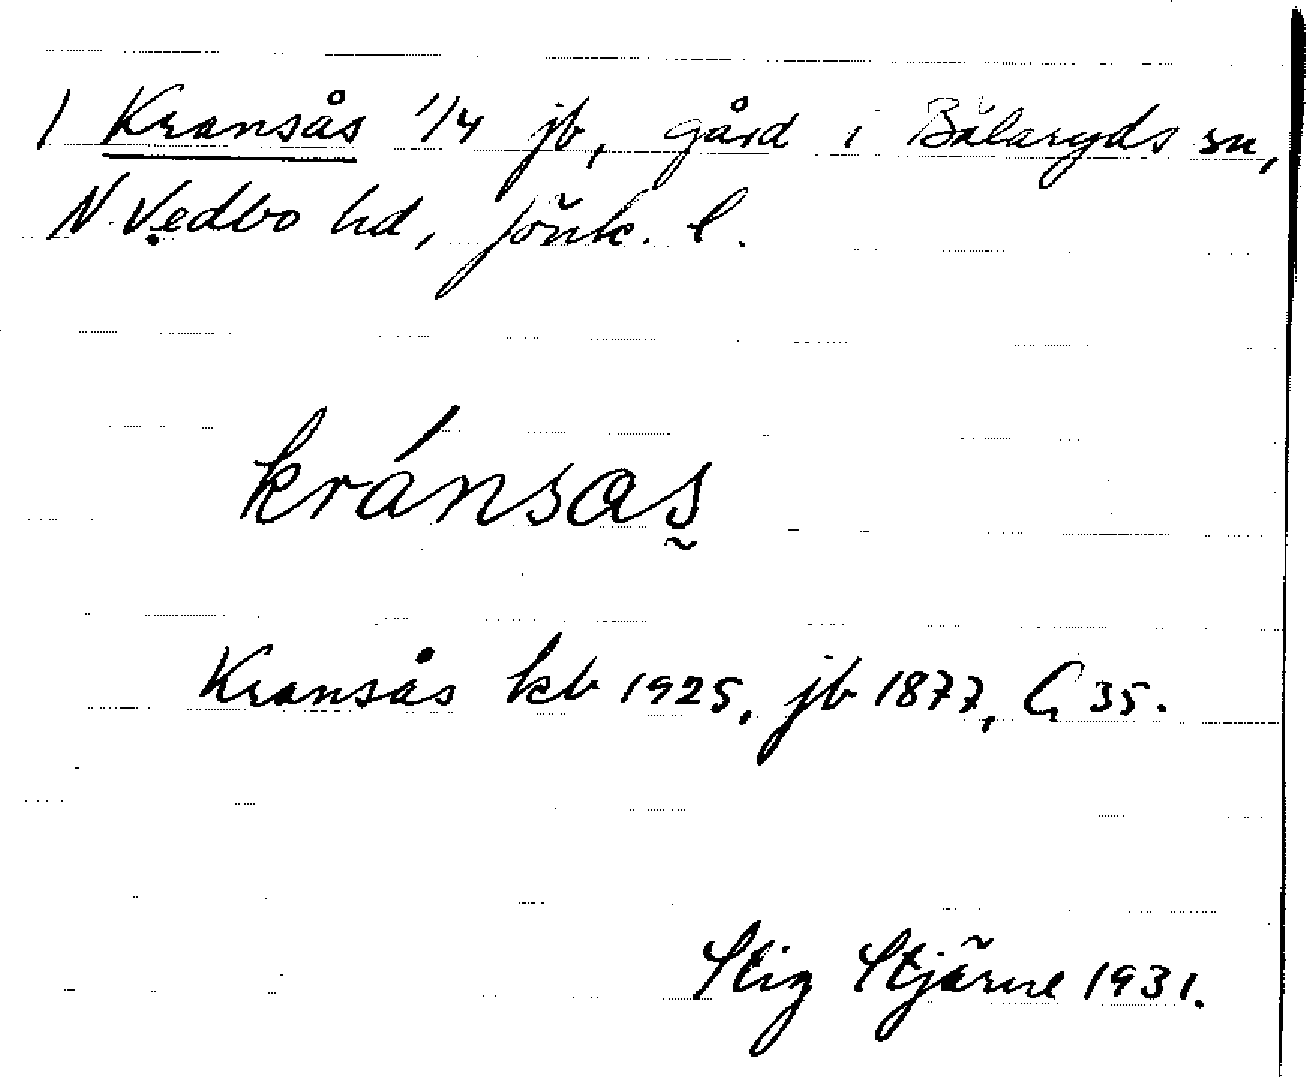 1 Kransås 1/4 jb, gård i Bälaryds sn,
N. Vedbo hd, Jönk. l.
kránsas̰
Kransås kb 1925, jb 1877, G 35.
Stig Stjärne 1931.